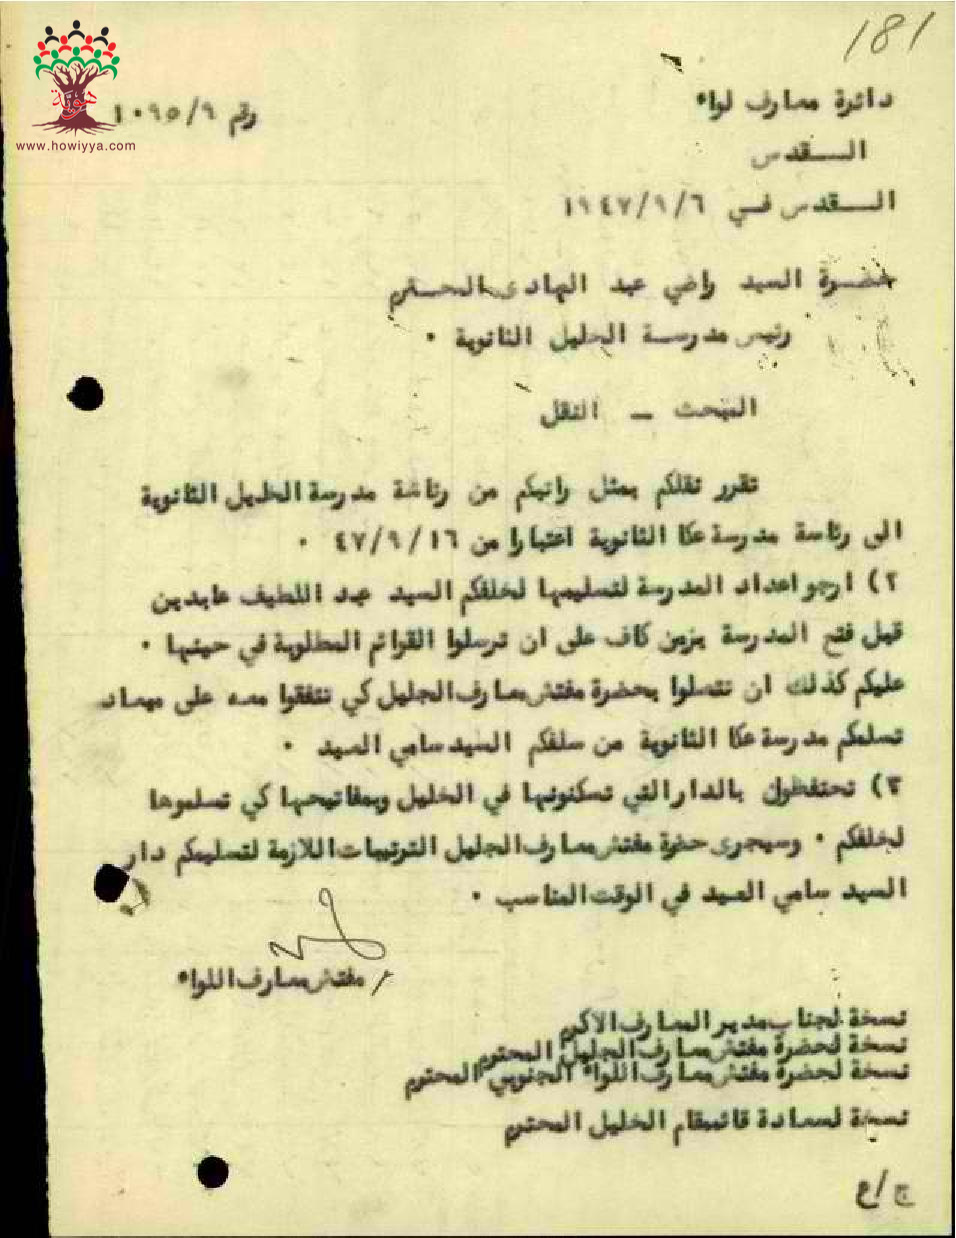 181
هوية
www.howiyya.com
دائرة معارف لواء
رقم ١٠٩٥/٩
القدس
القدس في ١٩٤٧/٩/٦
حضرة السيد راضي عبد الهادى المحترم
رئيس مدرسة الخليل الثانوية ٠
المبحث ــ النقل
تقرر نقلكم بمثل راتبكم من رئاسة مدرسة الخليل الثانوية
الى رئاسة مدرسة عكا الثانوية اعتبارا من ٤٧/٩/١٦ ٠
٢) ارجو اعداد المدرسة لتسليمها لخلفكم السيد عبد اللطيف عابدين
قبل فتح المدرسة بزمن كاف على ان ترسلوا القوائم المطلوبة في حينها ٠
عليكم كذلك ان تتصلوا بحضرة مفتش معارف الجليل كي تتفقوا معه على ميعاد
تسلمكم مدرسة عكا الثانوية من سلفكم السيد سامي العيد ٠
٣) تحتفظون بالدار التي تسكنونها في الخليل وبمفاتيحها كي تسلموها
لخلفكم ٠ وسيجرى حضرة مفتش معارف الجليل الترتيبات اللازمة لتسليمكم دار
السيد سامي العيد في الوقت المناسب ٠
/ مفتش معارف اللواء
نسخة لجناب مدير المعارف الاكرم
نسخة لحضرة مفتش معارف الجليل المحترم
نسخة لحضرة مفتش معارف اللواء الجنوبي المحترم
نسخة لسعادة قائمقام الخليل المحترم
ج/و